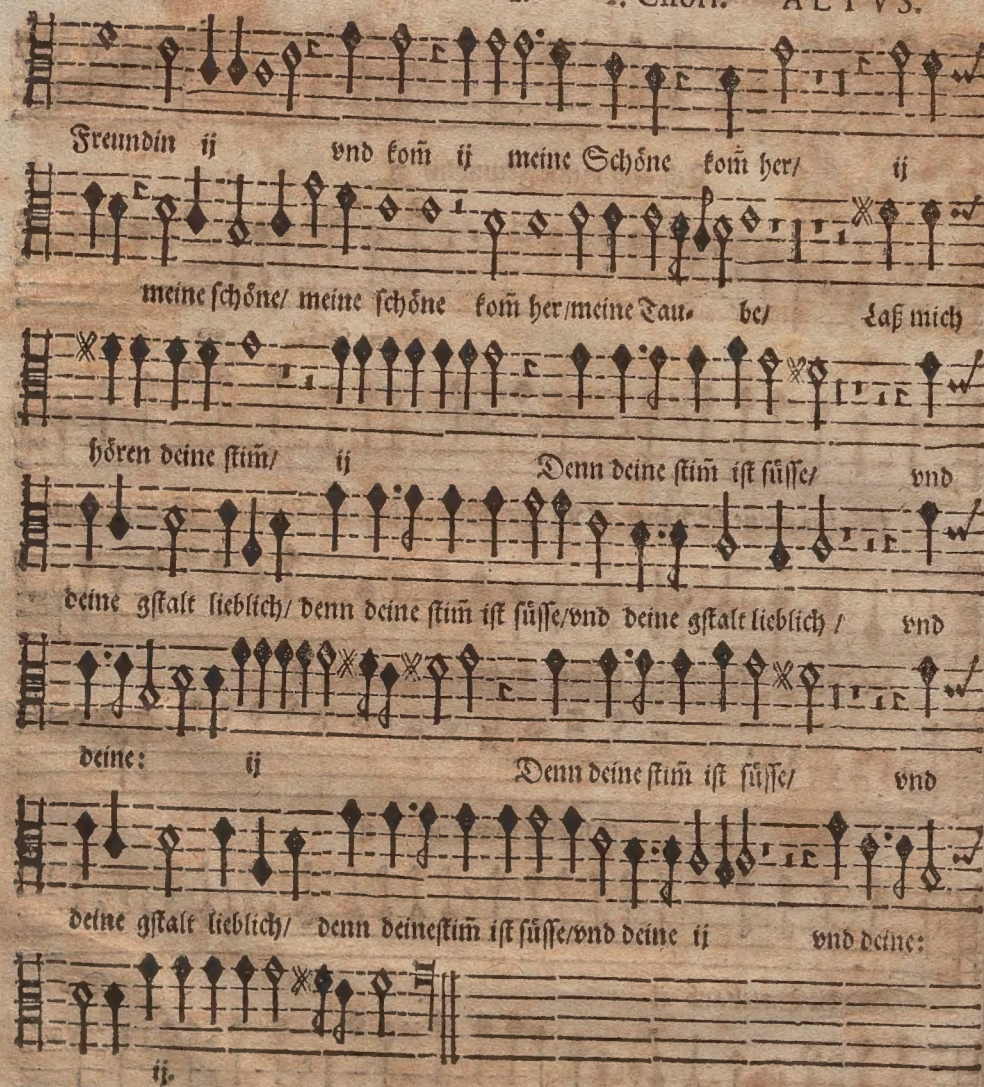 1. Chori. ALTVS.
Freundin ij vnd kom̃ ij meine Schöne kom̃ her/ ij
meine schöne/ meine schöne kom̃ her/meine Tau- be/ Laß mich
hören deine stim̃/ ij Denn deine stim̃ ist süsse/ vnd
deine gstalt lieblich/ denn deine stim̃ ist süsse/vnd deine gstalt lieblich/ vnd
deine: ij Denn deine stim̃ ist süsse/ vnd
deine gstalt lieblich/ denn deine stim̃ ist süsse/vnd deine ij vnd deine:
ij.